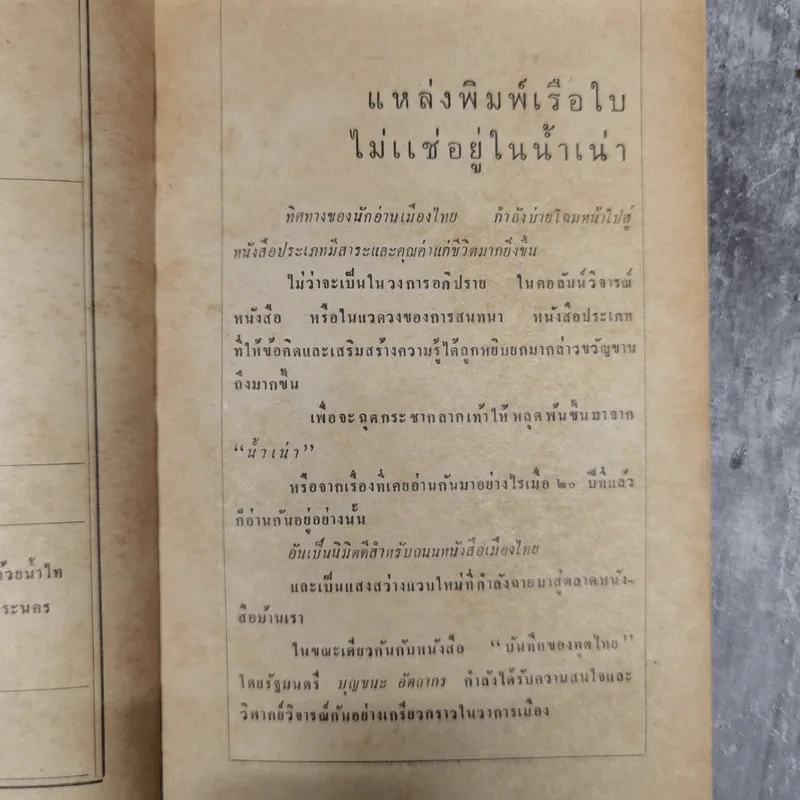 ้วยน้ำไท
ระนคร
แหล่งพิมพ์เรือใบ
ไม่แช่อยู่ในน้ำเน่า
ทิศทางของนักอ่านเมืองไทย กำลังบ่ายโฉมหน้าไปสู่
หนังสือประเภทมีสาระและคุณค่าแก่ชีวิตมากยิ่งขึ้น
ไม่ว่าจะเป็นในวงการอภิปราย ในคอลัมน์วิจารณ์
หนังสือ หรือในแวดวงของการสนทนา หนังสือประเภท
ที่ให้ข้อคิดและเสริมสร้างความรู้ได้ถูกหยิบยกมากล่าวขวัญขาน
ถึงมากขึ้น
เพื่อจะฉุดกระชากลากเท้าให้หลุดพ้นขึ้นมาจาก
“น้ำเน่า”
หรือจากเรื่องที่เคยอ่านกันมาอย่างไรเมื่อ ๒๐ ปีที่แล้ว
ก็อ่านกันอยู่อย่างนั้น
อันเป็นนิมิตดีสำหรับถนนหนังสือเมืองไทย
และเป็นแสงสว่างแวบใหม่ที่กำลังฉายมาสู่ตลาดหนัง-
สือบ้านเรา
ในขณะเดียวกันกับหนังสือ “บันทึกของทูตไทย”
โดยรัฐมนตรี บุญชนะ อัตถากร กำลังได้รับความสนใจและ
วิพากย์วิจารณ์กันอย่างเกรียวกราวในวาการเมือง